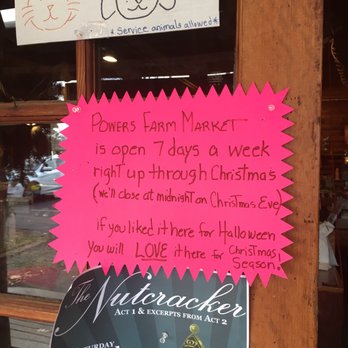 *Service animals allowed*
Powers Farm Market
is open 7 days a week
right up through Christmas
(we'll close at midnight on Christmas Eve)
if you liked it here for Halloween
you will LOVE it here for Christmas
Season!
The
Nutcracker
ACT 1 & EXCERPTS FROM ACT 2